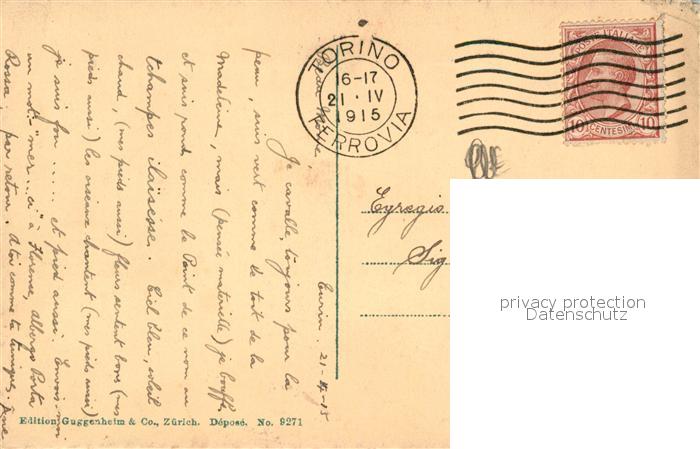 Turin. 21-4-15
Je cavalle, toujours pour la
peau, suis vert comme le toit de la
Madeleine, mais (pensée materielle) je bouffe
et suis pond comme le Point de ce nom au
tchampes
Ciel bleu, soleil
chaud, (mes pieds aussi) fleurs sentent bons (mes
pieds aussi) les oiseaux chantent (mes pieds aussi)
je suis fou ..... et pied aussi. Envois-moi
un mot "mer...ci" à Florence, albergo Porta
Rossa, par retour. A toi comme tu
TORINO
16-17
21 · IV
1915
FERROVIA
POSTE ITALIANE
10 CENTESIMI 10
Sig
privacy protection
Datenschutz
Edition Guggenheim & Co., Zürich. Déposé. No. 9271